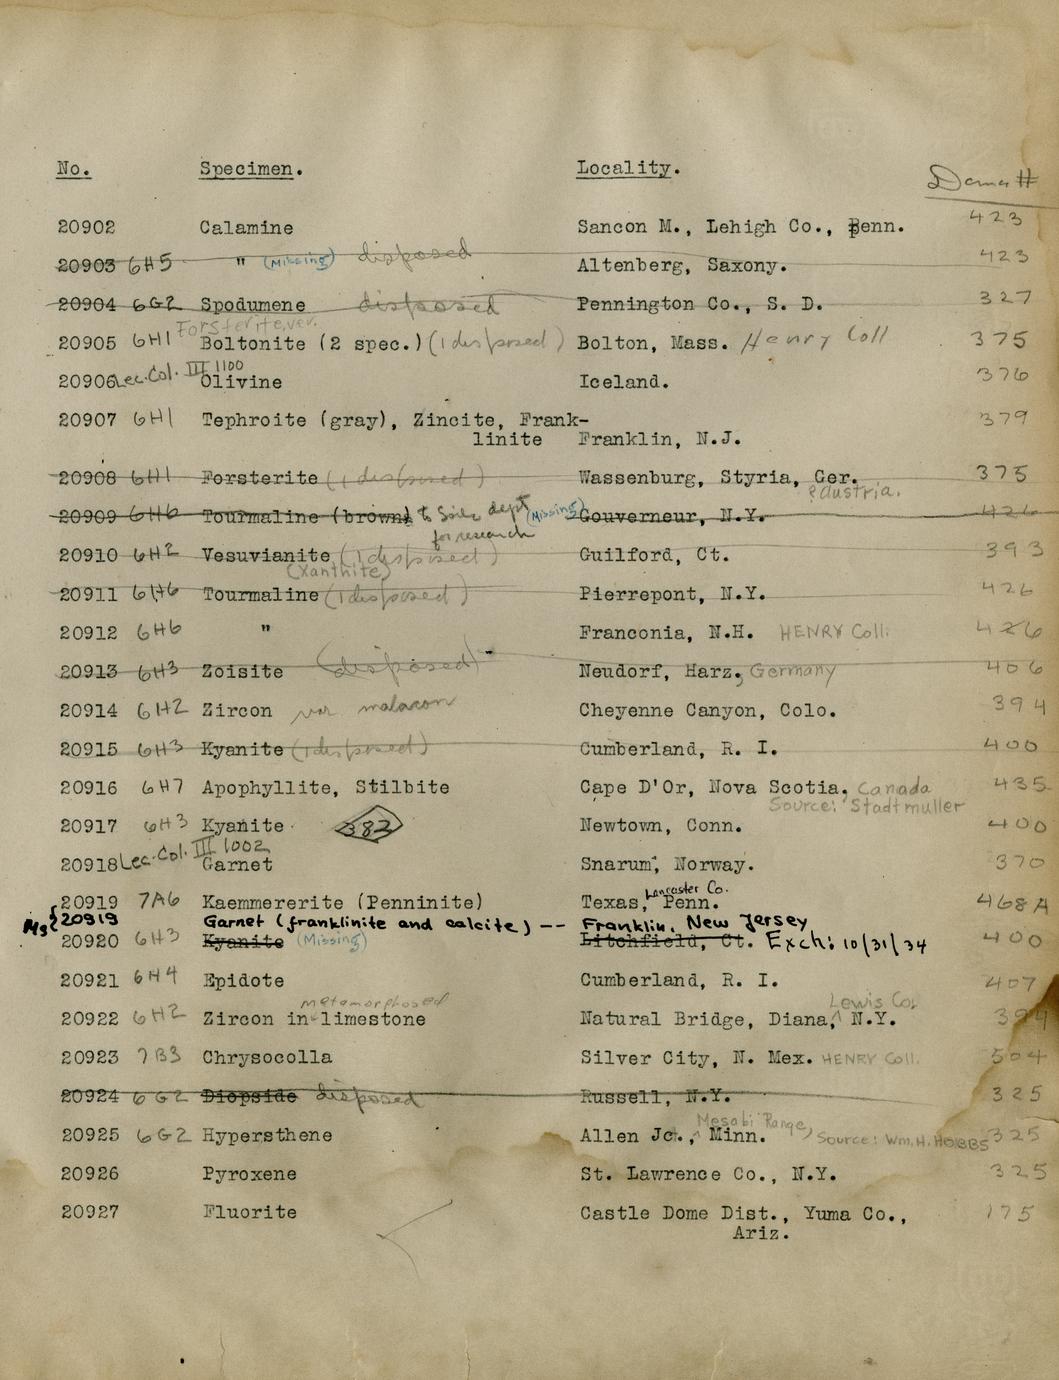 No. Specimen. Locality. Dana #
20902 Calamine Sancon M., Lehigh Co., Penn. 423
20903 6H5 " (Missing) disposed Altenberg, Saxony. 423
20904 6G2 Spodumene disposed Pennington Co., S. D. 327
Forsterite, var.
20905 6H1 Boltonite (2 spec.) (1 disposed) Bolton, Mass. Henry Coll 375
20906 Lec. Col. III 1100 Olivine Iceland. 376
20907 6H1 Tephroite (gray), Zincite, Frank- 379
linite Franklin, N.J.
20908 6H1 Forsterite (1 disposed) Wassenburg, Styria, Ger. 375
? Austria.
20909 6H6 Tourmaline (brown) to Soils dept (Missing) Gouverneur, N.Y. 426
for research
20910 6H2 Vesuvianite (1 disposed) Guilford, Ct. 393
(Xanthite)
20911 6H6 Tourmaline (1 disposed) Pierrepont, N.Y. 426
20912 6H6 " Franconia, N.H. HENRY Coll. 426
20913 6H3 Zoisite (disposed) Neudorf, Harz, Germany 406
20914 6H2 Zircon var malacon Cheyenne Canyon, Colo. 394
20915 6H3 Kyanite (1 disposed) Cumberland, R. I. 400
20916 6H7 Apophyllite, Stilbite Cape D'Or, Nova Scotia. Canada 435
Source: Stadtmuller
20917 6H3 Kyanite 382 Newtown, Conn. 400
20918 Lec. Col. III 1002 Garnet Snarum, Norway. 370
Lancaster Co.
20919 7A6 Kaemmererite (Penninite) Texas, Penn. 468A
20919 Garnet (franklinite and calcite) -- Franklin, New Jersey
20920 6H3 Kyanite (Missing) Litchfield, Ct. Exch: 10/31/34 400
20921 6H4 Epidote Cumberland, R. I. 407
metamorphosed Lewis Co.
20922 6H2 Zircon in limestone Natural Bridge, Diana, N.Y. 394
20923 7B3 Chrysocolla Silver City, N. Mex. HENRY Coll. 504
20924 6G2 Diopside disposed Russell, N.Y. 325
Mesabi Range,
20925 6G2 Hypersthene Allen Jc., Minn. Source: Wm. H. HOBBS 325
20926 Pyroxene St. Lawrence Co., N.Y. 325
20927 Fluorite Castle Dome Dist., Yuma Co., 175
Ariz.